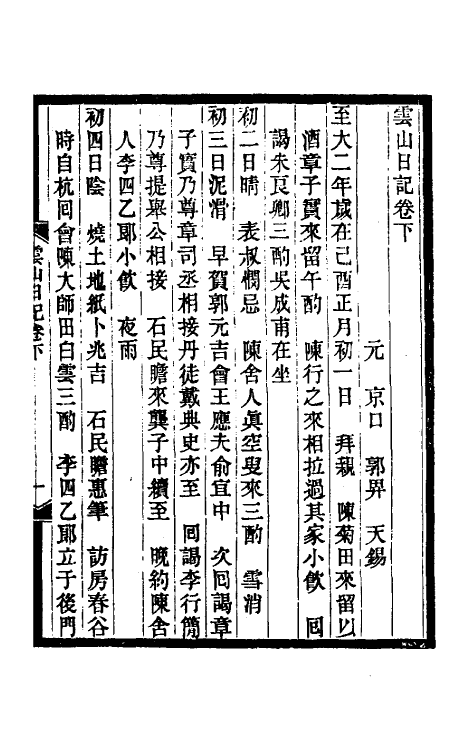 雲山日記卷下
元　京口　郭畀　天錫
至大二年歲在己酉正月初一日　拜親　陳菊田來留以
酒章子實來留午酌　陳行之來相拉過其家小飲　回
謁朱艮卿三酌吳成甫在坐
初二日晴　表叔憫忌　陳舍人眞空叟來三酌　雪消
初三日泥滑　早賀郭元吉會王應夫俞宜中　次回謁章
子實乃尊章司丞相接丹徒戴典史亦至　回謁李行簡
乃尊提舉公相接　石民瞻來龔子中續至　晚約陳舍
人李四乙郞小飲　夜雨
初四日陰　燒土地紙卜兆吉　石民瞻惠筆　訪房春谷
時自杭回會陳大師田白雲三酌　李四乙郞立于後門
雲山日記卷下　一